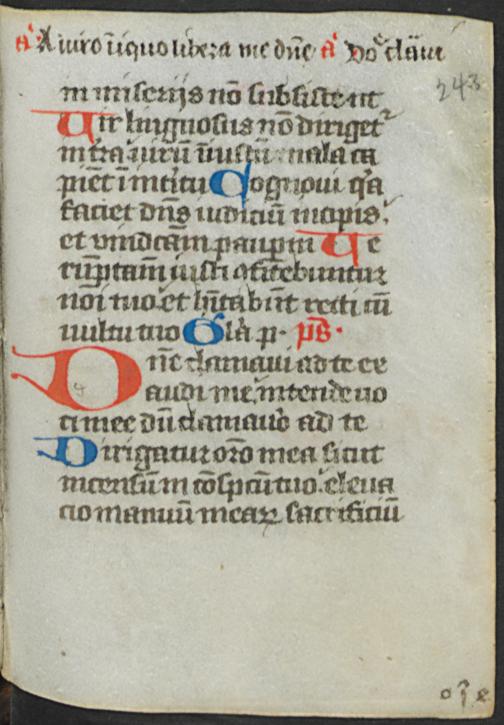 a᷑ A uiro iniquo libera me dn̄e a᷑ Dn̄e clāui
243
in miserijs nō subsistent
Uir linguosus nō diriget᷑
in t̄ra uirū īiustū mala ca
piēt ī intitu Cognoui q̄a
faciet dn̄s iudiciū inopis
et vindcām paupm̄ Ue
rūptam̄ iusti ɔfitebuntur
noī tuo et hītabūt recti cū
uultu tuo Gl̄a p̄. ps̄.
Dn̄e clamaui ad te ex
audi me intende uo
ci mee dū clamauō ad te
Dirigatur or̄o mea sicut
incensum in cōspcū tuo eleua
cio manuū mearꝝ sacrificiū